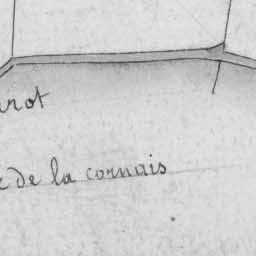 not
de la cornais